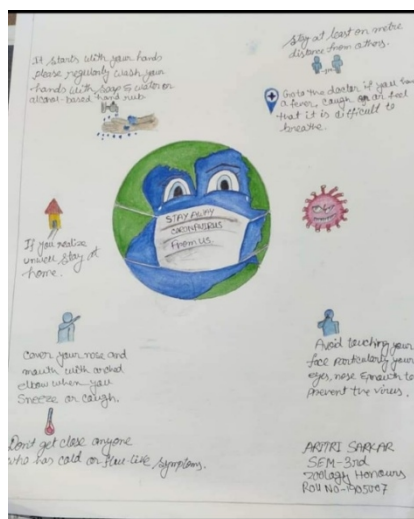 It starts with your hands
please regularly wash your
hands with soap & water or
alcohol-based hand rub
Stay at least on metre
distance from others.
Go to the doctor if you have
a fever, caugh or feel
that it is difficult to
breathe.
STAY AWAY
CORONAVIRUS
From us.
If you realise
unwell, stay at
home.
Cover your nose and
mouth with
elbow when you
Sneeze or caugh.
Avoid touching your
face particularly your
eyes, nose & mouth to
prevent the virus.
Don't get close anyone
who has cold or flue-like symptoms.
ARITRI SARKAR
SEM-3rd
Zoology Honours
Roll No-